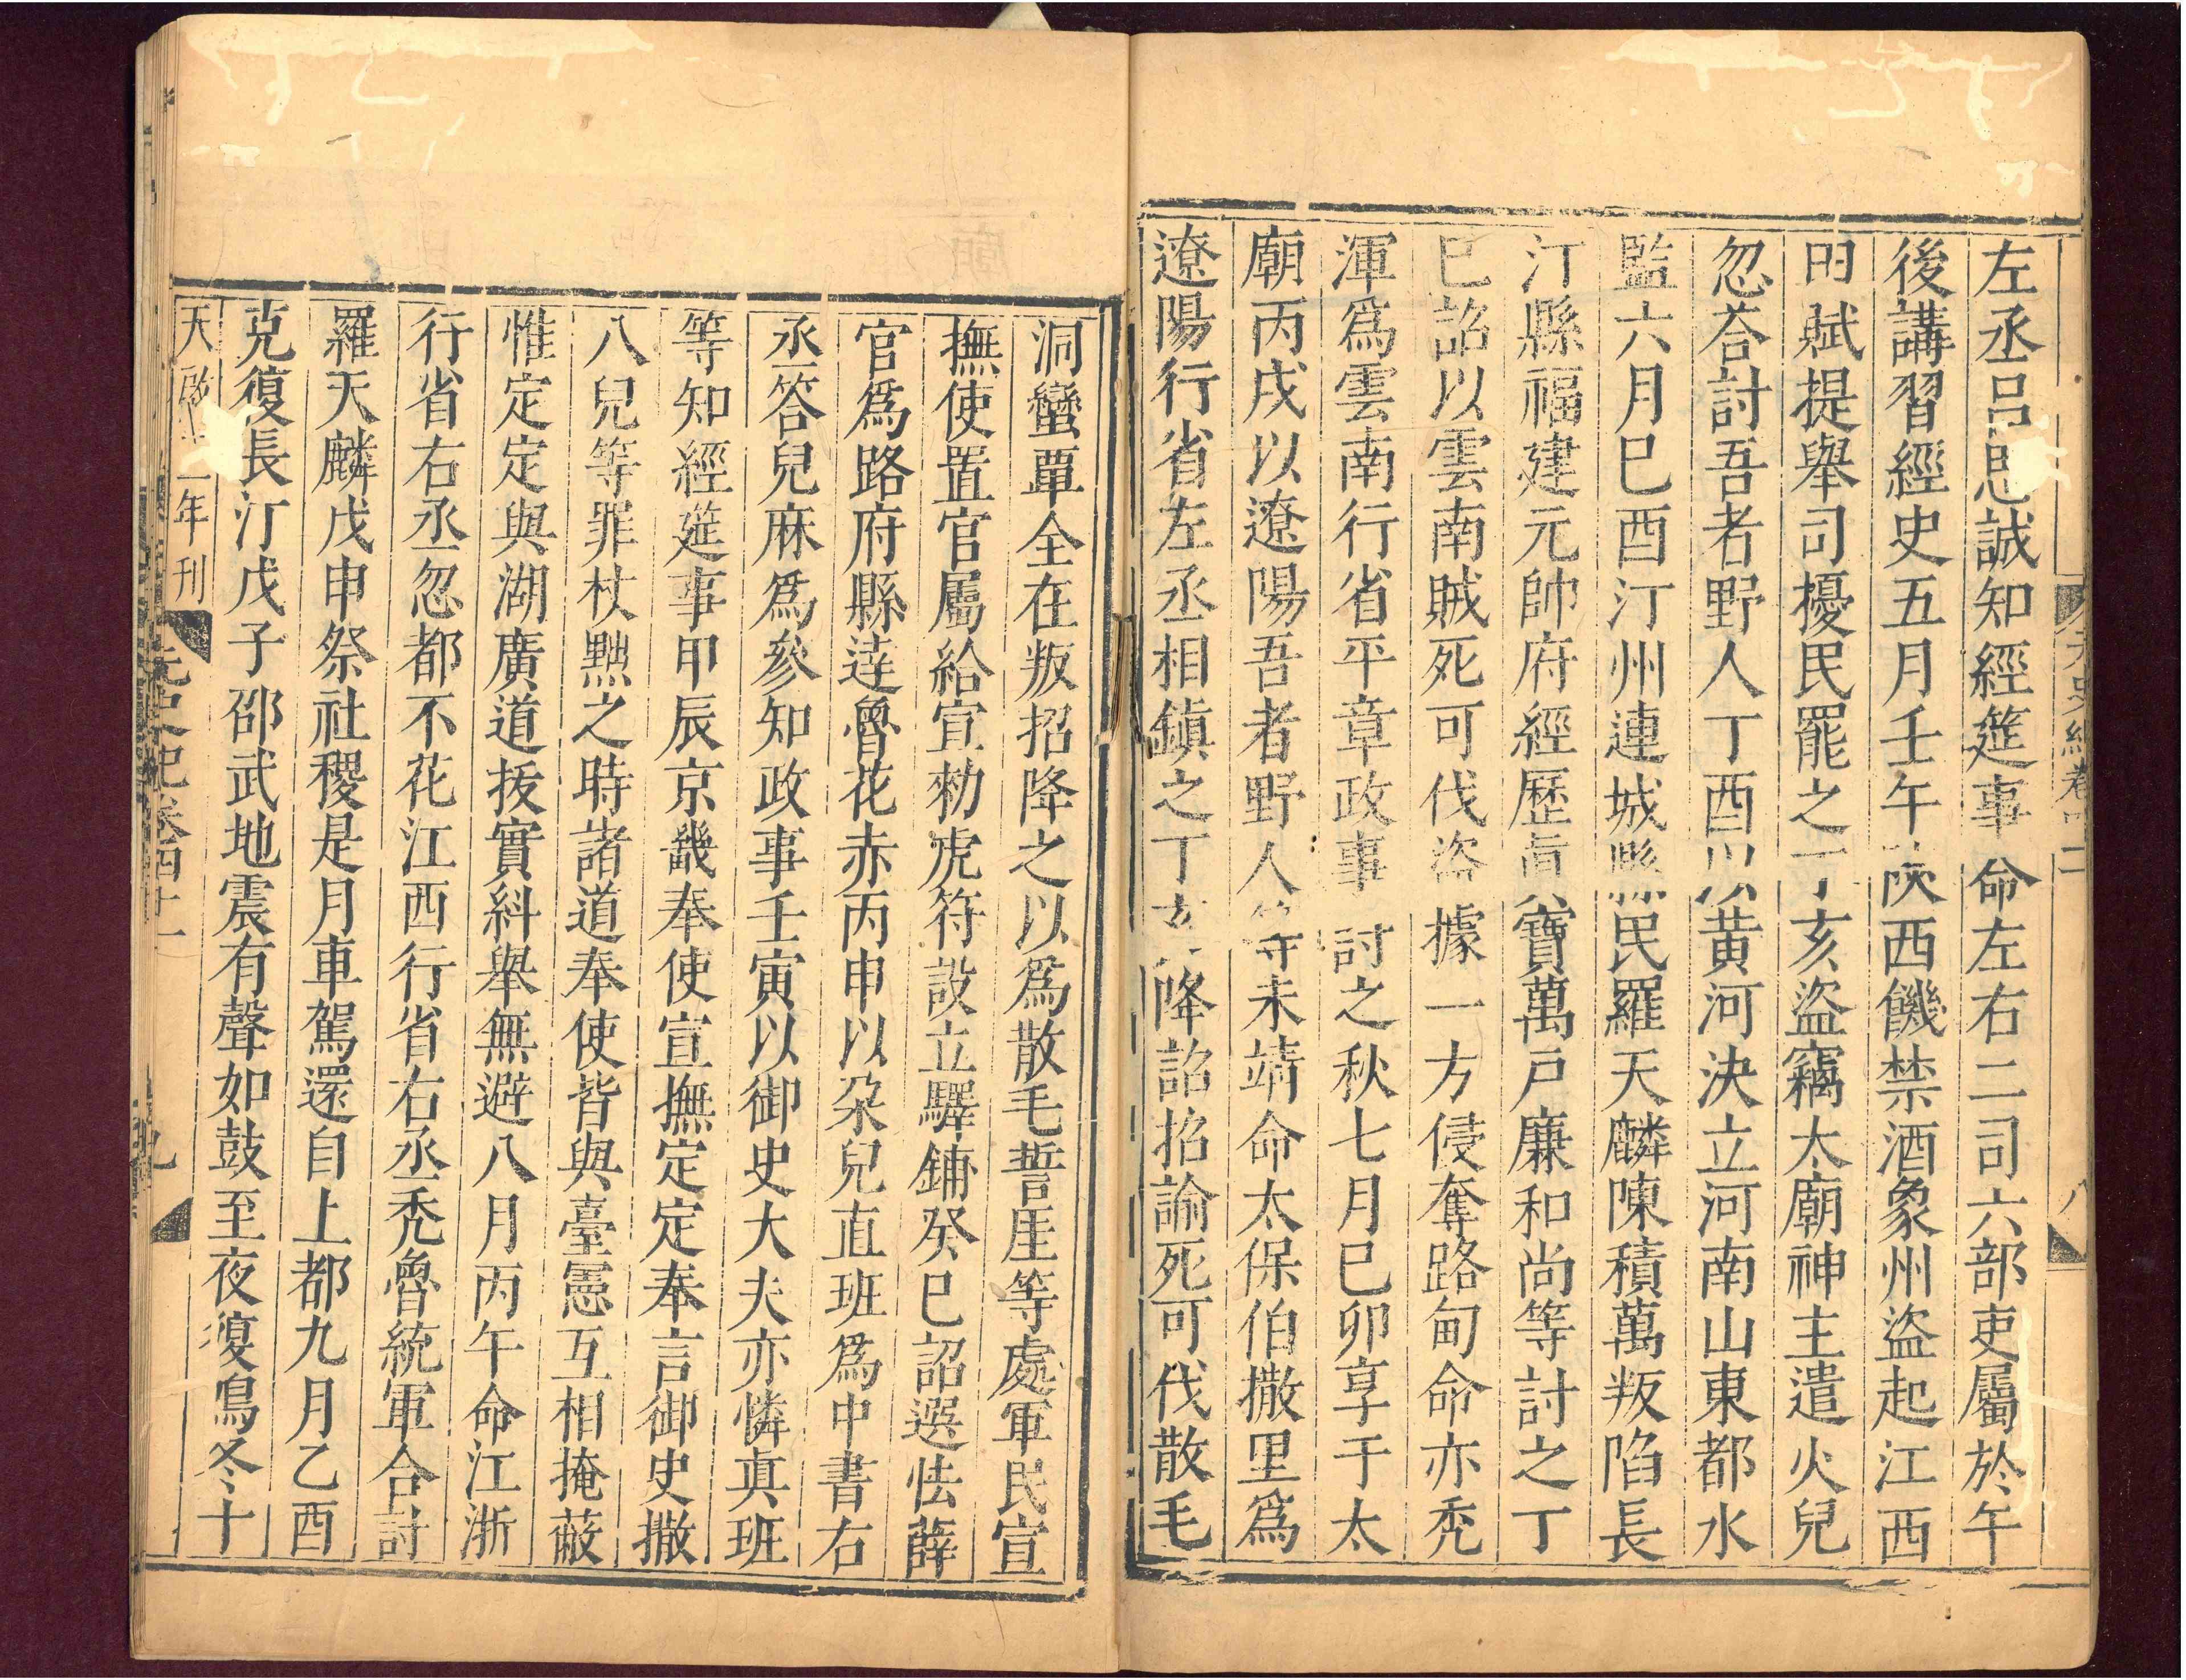 左丞呂思誠知經筵事命左右二司六部吏屬於午
後講習經史五月壬午陜西饑禁酒象州盜起江西
田賦提舉司擾民罷之丁亥盜竊太廟神主遣火兒
忽荅討吾者野人丁酉以黃河決立河南山東都水
監六月巳酉汀州連城縣民羅天麟陳積萬叛陷長
汀縣福建元帥府經歷眞寶萬戶廉和尚等討之丁
巳詔以雲南賊死可伐盜據一方侵奪路甸命亦禿
渾爲雲南行省平章政事討之秋七月巳卯享于太
廟丙戌以遼陽吾者野人等未靖命太保伯撒里爲
遼陽行省左丞相鎮之丁亥降詔招諭死可伐散毛
元史紀卷四十一 八
洞蠻覃全在叛招降之以爲散毛誓厓等處軍民宣
撫使置官屬給宣勑虎符設立驛鋪癸巳詔選怯薛
官爲路府縣逹魯花赤丙申以朶兒直班爲中書右
丞答兒麻爲參知政事壬寅以御史大夫亦憐真班
等知經筵事甲辰京畿奉使宣撫定定奉言御史撒
八兒等罪杖黜之時諸道奉使皆與臺憲互相掩蔽
惟定定與湖廣道拔實糾舉無避八月丙午命江浙
行省右丞忽都不花江西行省右丞禿魯統軍合討
羅天麟戊申祭社稷是月車駕還自上都九月乙酉
克復長汀戊子邵武地震有聲如鼓至夜復鳴冬十
天啟二年刊 元史紀卷四十一 九